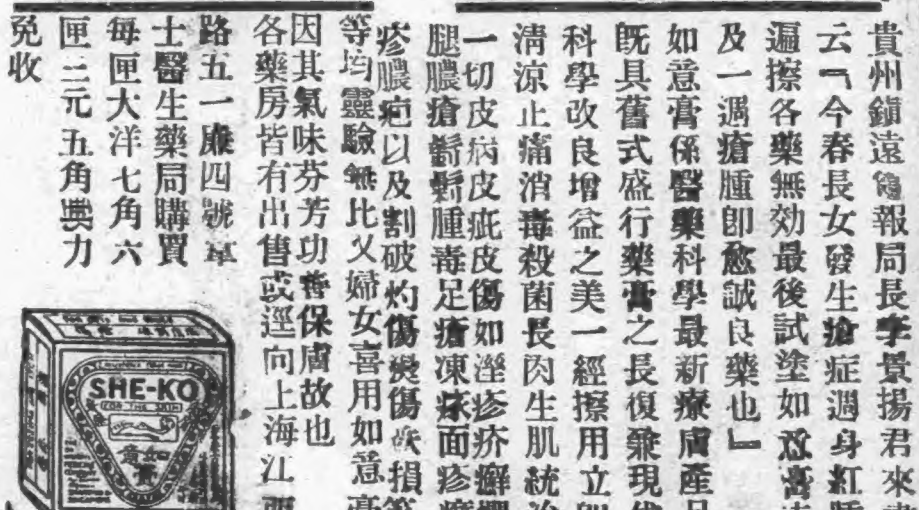 貴州鎮遠電報局長李景揚君來
云『今春長女發生瘡症週身紅腫
遍擦各藥無効最後試塗如意膏
及一週瘡腫卽愈誠良藥也』
如意膏係醫藥科學最新療膚產品
旣具舊式盛行藥膏之長復兼現代
科學改良增益之美一經擦用立
淸涼止痛消毒殺菌長肉生肌統治
一切皮病皮疵皮傷如溼疹疥癬
腿膿瘡鬍鬚腫毒足瘡凍瘃面疹
疹膿疱以及割破灼傷燙傷跌損等
等均靈驗無比又婦女喜用如意膏
因其氣味芬芳功善保膚故也
各藥房皆有出售或逕向上海江西
路五一廉四號韋
士醫生藥局購買
每匣大洋七角六
匣二元五角郵力
免收
SHE-KO
FOR THE SKIN
如意膏